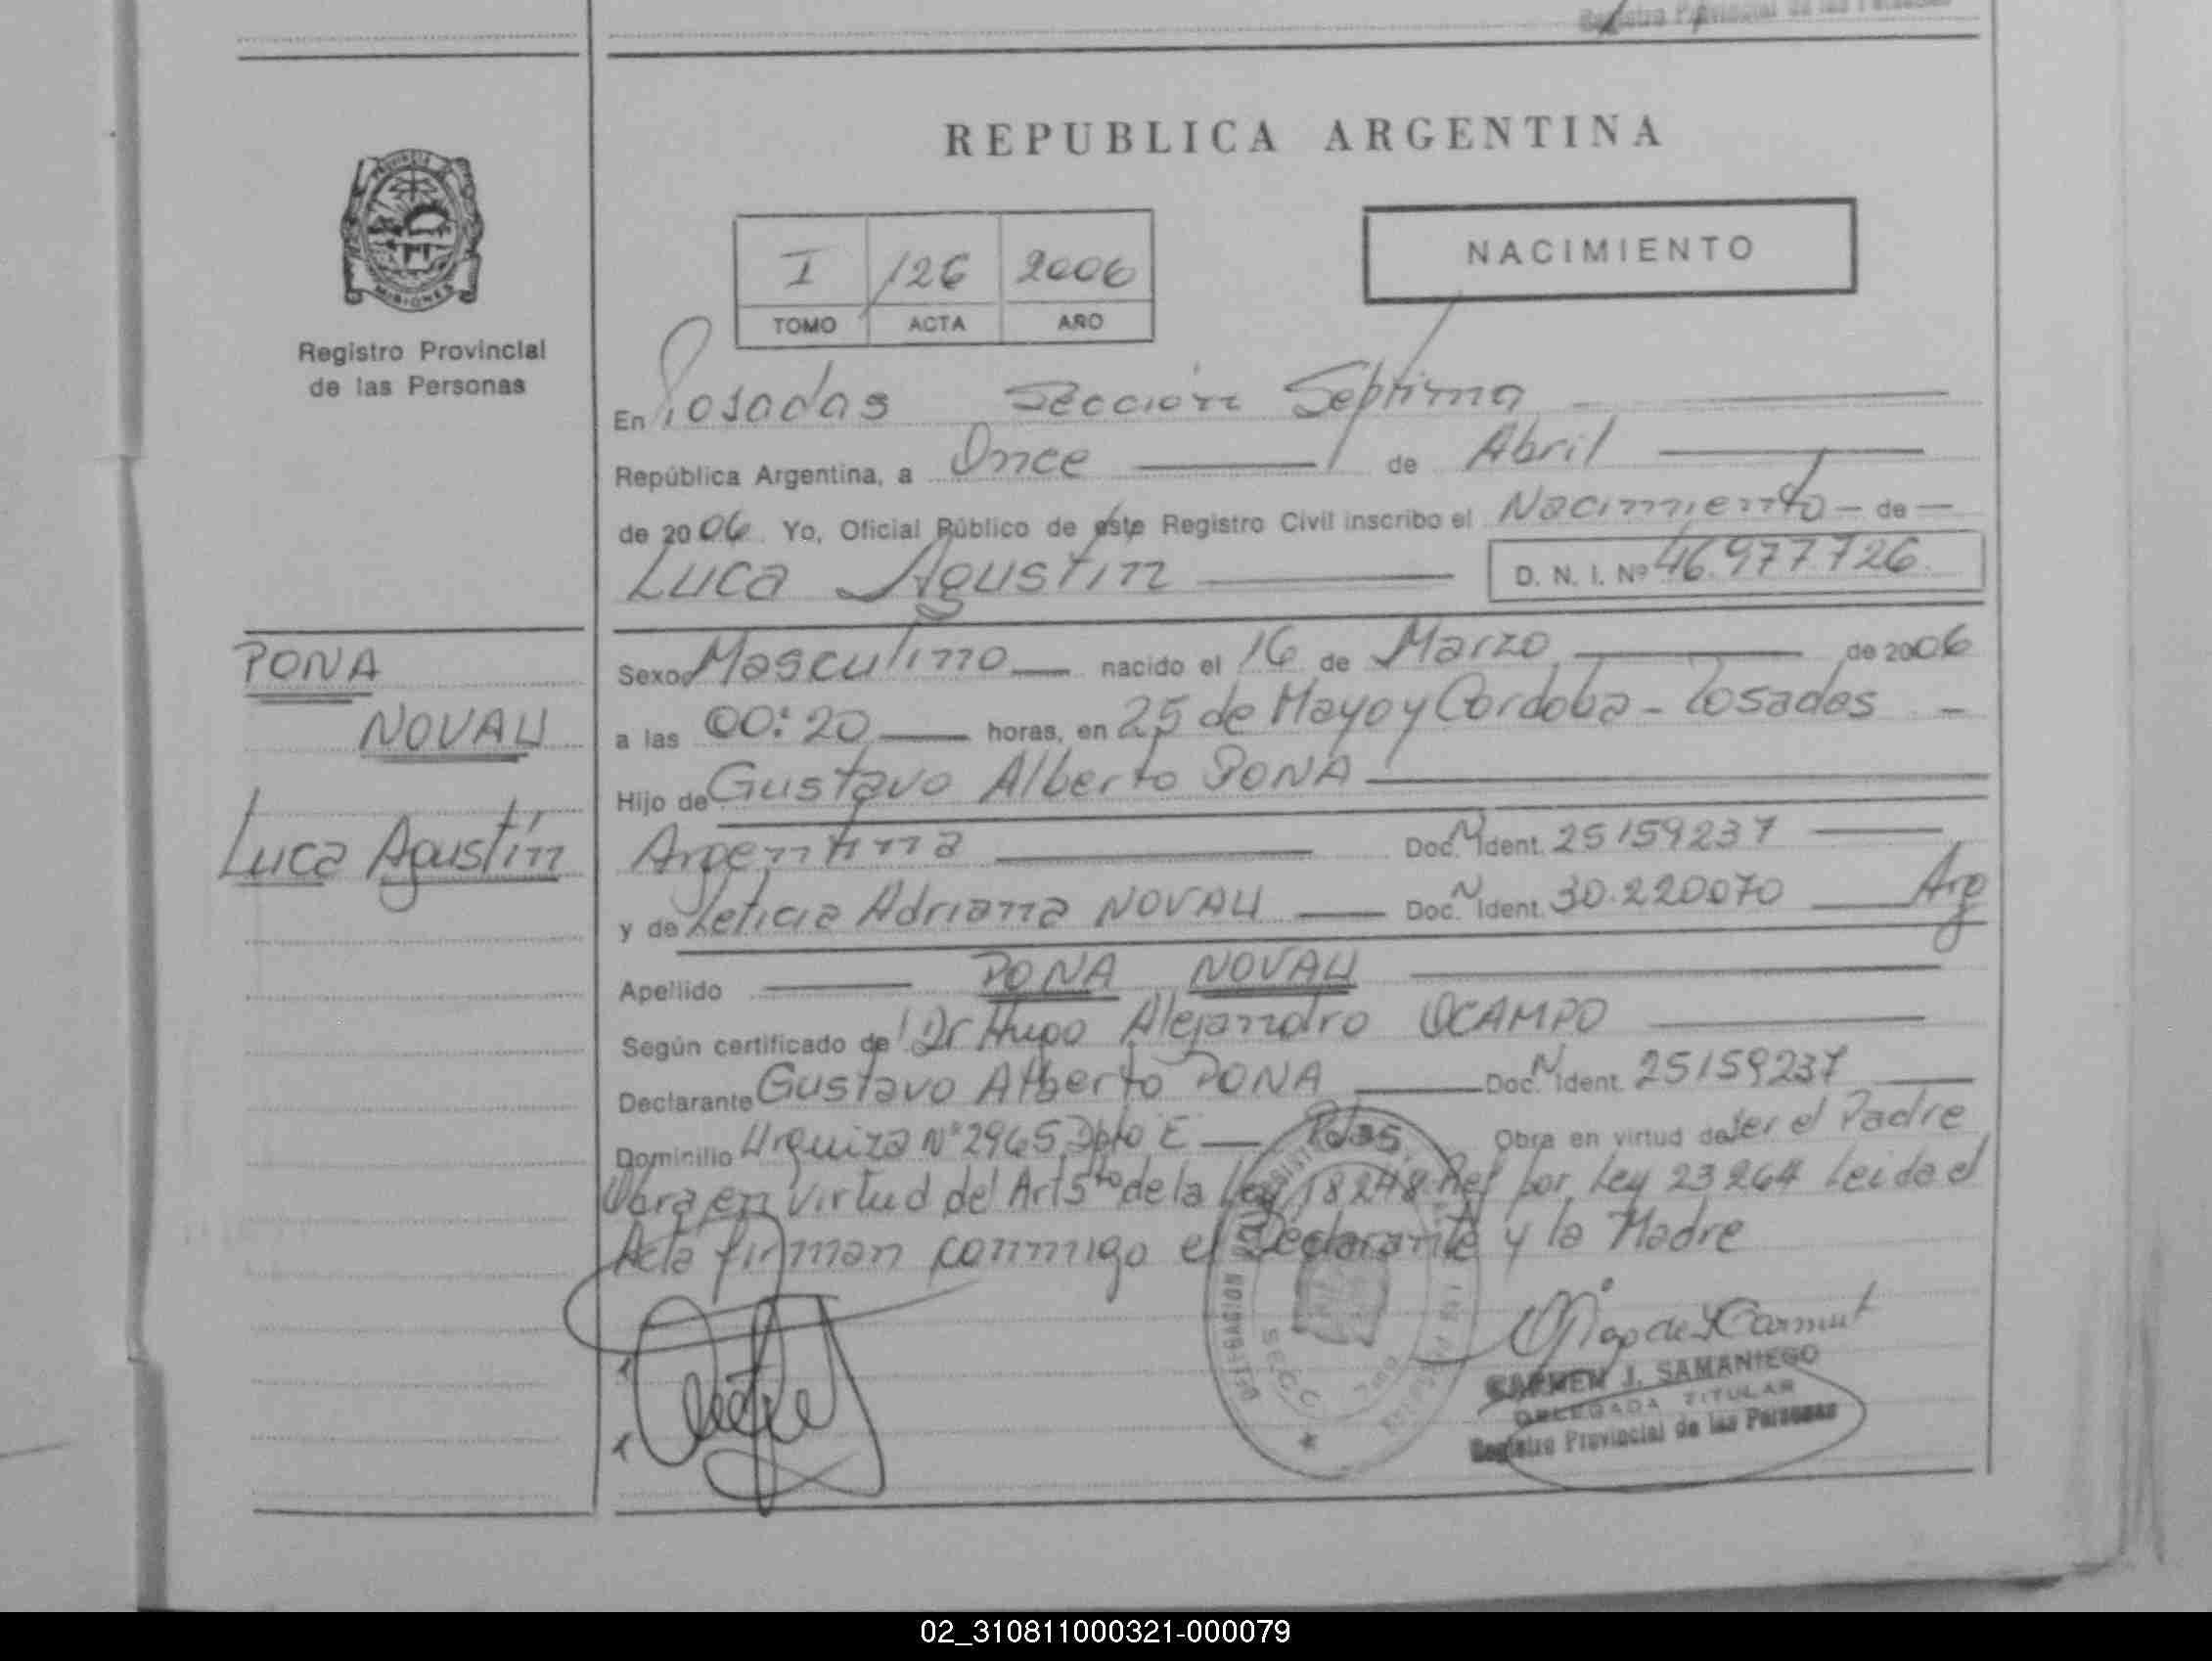 Registro Provincial de las Personas
REPUBLICA ARGENTINA
PROVINCIA
MISIONES
Registro Provincial
de las Personas
I 126 2006
TOMO ACTA AÑO
NACIMIENTO
En Posadas Sección Septima
República Argentina, a Once de Abril
de 2006. Yo, Oficial Público de este Registro Civil inscribo el Nacimiento de
Luca Agustín D. N. I. Nº 46.977.726
PONA
NOVAU
Luca Agustín
Sexo Masculino nacido el 16 de Marzo de 2006
a las 00:20 horas, en 25 de Mayo y Cordoba - Posadas -
Hijo de Gustavo Alberto PONA
Argentina Doc. N Ident. 25159237
y de Leticia Adriana NOVAU Doc. N Ident. 30.220070 Arg
Apellido PONA NOVAU
Según certificado de Dr Hugo Alejandro OCAMPO
Declarante Gustavo Alberto PONA Doc. N Ident. 25159237
Domicilio Urquiza Nº 2965 Dpto E Pdas Obra en virtud de Ser el Padre
Obra en virtud del Art 5to de la Ley 18248 Ref por Ley 23264 Leida el
Acta firman conmigo el Declarante y la Madre
DELEGACION
SECC.
CARMEN J. SAMANIEGO
DELEGADA TITULAR
Registro Provincial de las Personas
02_310811000321-000079